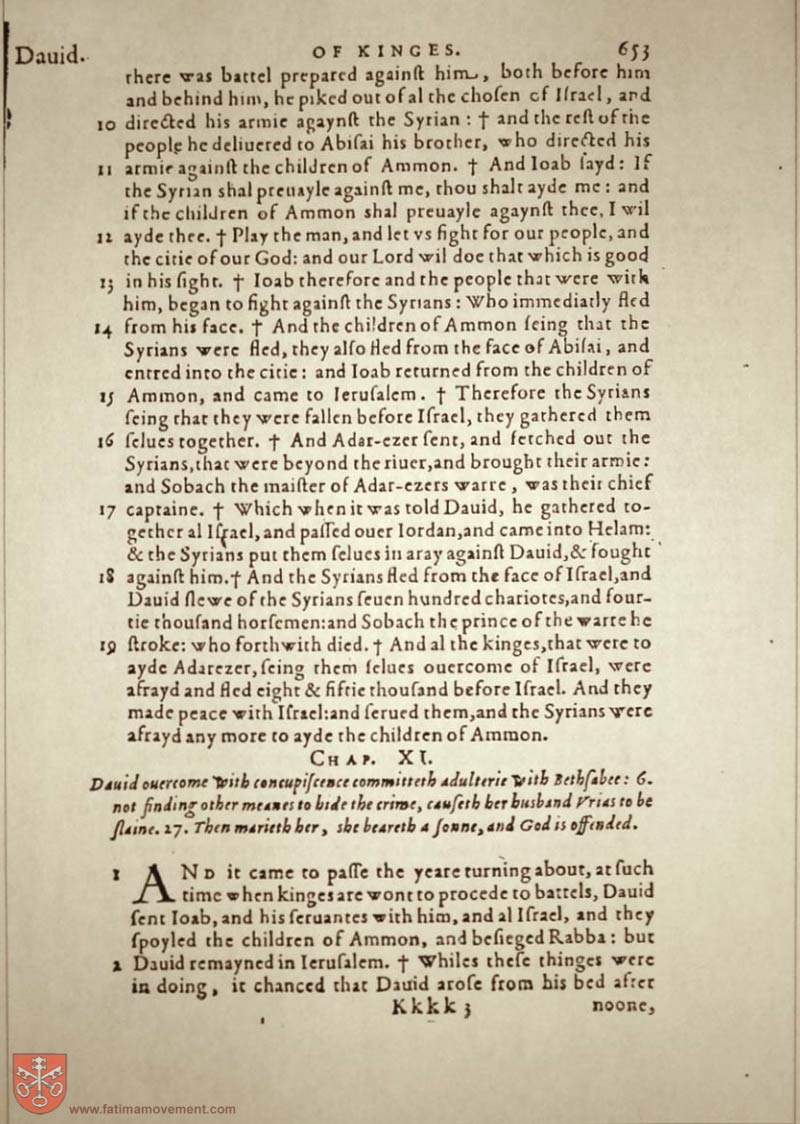 Dauid.
OF KINGES.
653
there was battel prepared againſt him, both before him
and behind him, he piked out of al the choſen of Iſrael, and
10 directed his armie agaynſt the Syrian : † and the reſt of the
people he deliuered to Abiſai his brother, who directed his
11 armie againſt the children of Ammon. † And Ioab ſayd: If
the Syrian shal preuayle againſt me, thou shalt ayde me: and
if the children of Ammon shal preuayle agaynſt thee, I wil
12 ayde thee. † Play the man, and let vs fight for our people, and
the citie of our God: and our Lord wil doe that which is good
13 in his ſight. † Ioab therefore and the people that were with
him, began to fight againſt the Syrians: Who immediatly fled
14 from his face. † And the children of Ammon ſeing that the
Syrians were fled, they alſo fled from the face of Abiſai, and
entred into the citie: and Ioab returned from the children of
15 Ammon, and came to Ieruſalem. † Therefore the Syrians
ſeing that they were fallen before Iſrael, they gathered them
16 ſelues together. † And Adar-ezer ſent, and fetched out the
Syrians, that were beyond the riuer, and brought their armie:
and Sobach the maiſter of Adar-ezers warre, was their chief
17 captaine. † Which when it was told Dauid, he gathered to-
gether al Iſrael, and paſſed ouer Iordan, and came into Helam:
& the Syrians put them ſelues in aray againſt Dauid, & fought
18 againſt him. † And the Syrians fled from the face of Iſrael, and
Dauid ſlewe of the Syrians ſeuen hundred chariotes, and four-
tie thouſand horſemen: and Sobach the prince of the warre he
19 ſtroke: who forthwith died. † And al the kinges, that were to
ayde Adarezer, ſeing them ſelues ouercome of Iſrael, were
afrayd and fled eight & fiftie thouſand before Iſrael. And they
made peace with Iſrael: and ſerued them, and the Syrians were
afrayd any more to ayde the children of Ammon.
CHAP. XI.
Dauid ouercome with concupiſcence committeth adulterie with Bethſabee: 6.
not finding other meanes to hide the crime, cauſeth her husband Vrias to be
ſlaine. 27. Then marieth her, she beareth a ſonne, and God is offended.
1 AND it came to paſſe the yeare turning about, at ſuch
time when kinges are wont to procede to battels, Dauid
ſent Ioab, and his ſeruantes with him, and al Iſrael, and they
ſpoyled the children of Ammon, and beſieged Rabba: but
2 Dauid remayned in Ieruſalem. † Whiles theſe thinges were
in doing, it chanced that Dauid aroſe from his bed after
Kkkk 3
noone,
www.fatimamovement.com